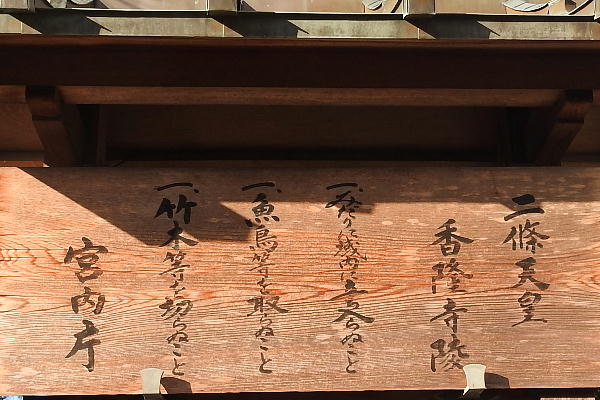 二條天皇
香隆寺陵
一、みだりに域内に立入らぬこと
一、魚鳥等を取らぬこと
一、竹木等を切らぬこと
宮内庁